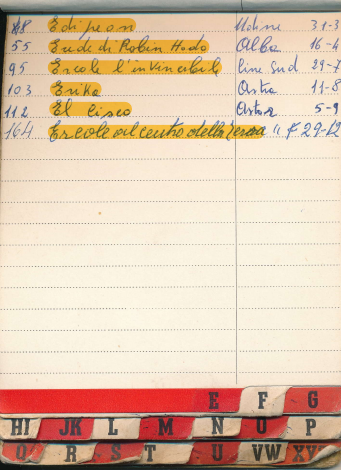 48 Edipeon Udine 31-3
55 Erede di Robin Hodo Alba 16-4
95 Ercole l'invincibile Cine Sud 29-7
103 Erika Astra 11-8
112 El cisco Astor 5-9
164 Ercole al centro della terra " F 29-12
E F G
HI JK L M N O P
Q R S T U VW XY